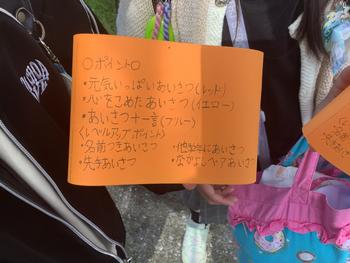 ○ポイント○
・元気いっぱいあいさつ(レッド)
・心をこめたあいさつ(イエロー)
・あいさつ+一言(ブルー)
〈レベルアップポイント〉
・名前つきあいさつ ・他学年にあいさつ
・先手あいさつ ・なかよしペアあいさつ